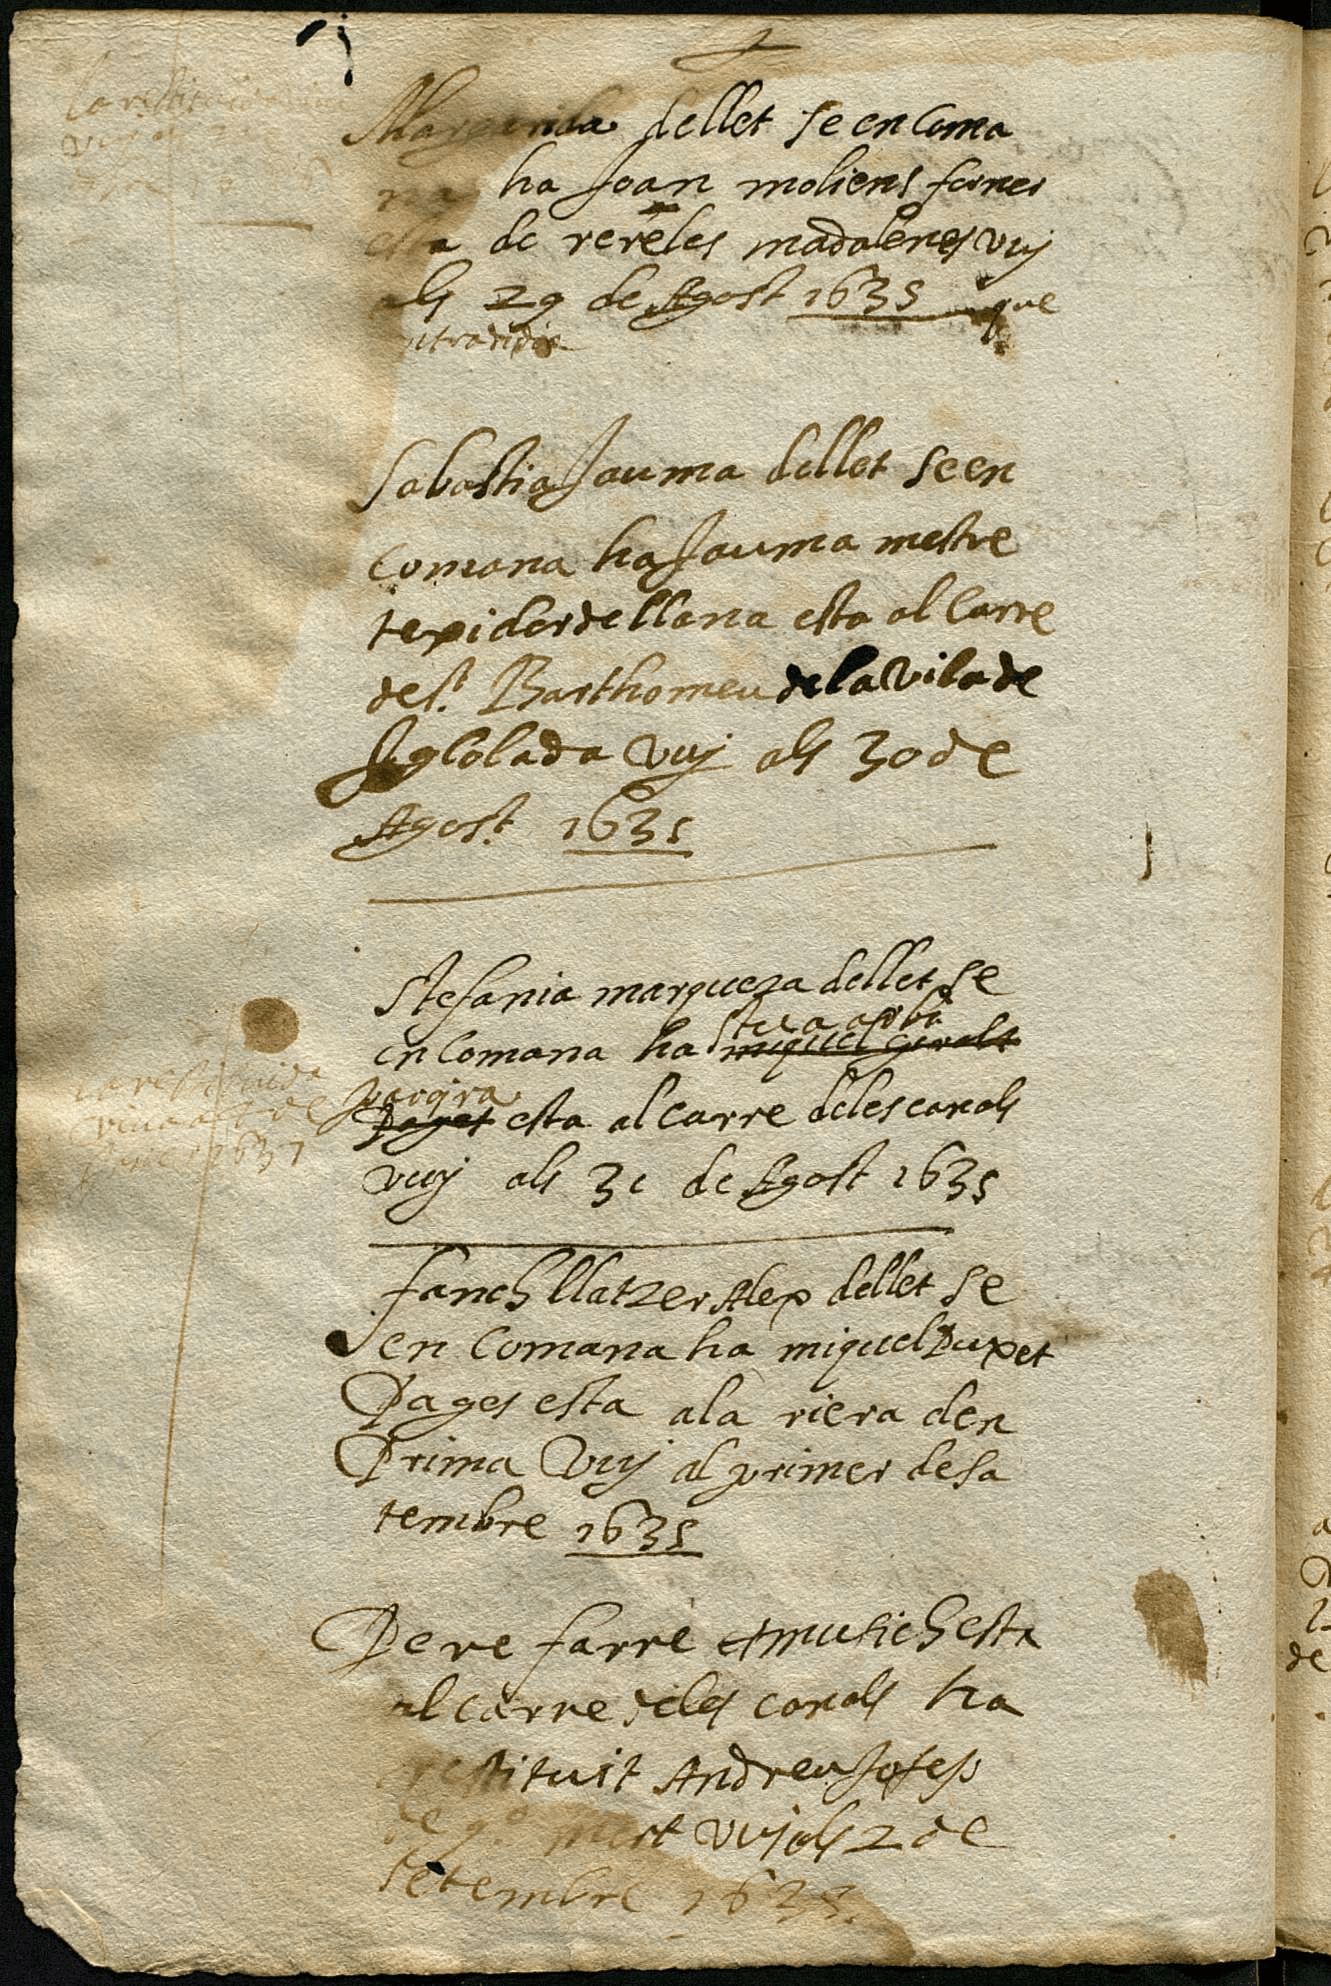 Margarida dellet se en Coma
na ha Joan moliens forner
esta de rereles madalenes vuj
als 29 de Agost 1635 que
Sabastia Jauma dellet se en
Comana ha Jauma mestre
texidor de llana esta al Carre
de St. Barthomeu de la Vila de
Iglolada vuj als 30 de
Agost. 1635
la restituida
vuia a 7 de
1637
Stefania marqueza dellet se
en Comana ha miquel Giralt
Pages esta al carre deles canals
vuj als 31 de Agost 1635
Fanch llatzer Alex dellet se
en Comana ha miquel Dupet
Pages esta ala riera den
Prima Vuj al primer de sa
tembre 1635
Pere farre Amutich esta
al carre deles canals ha
restituit Andreu Josep
mort vuj als 2 de
setembre 1635.